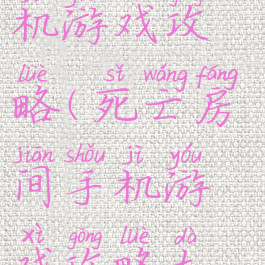 机游戏攻
lüè sǐ wáng fáng
略(死亡房
jiān shǒu jī yóu
间手机游
xì gōng lüè dà
戏攻略大